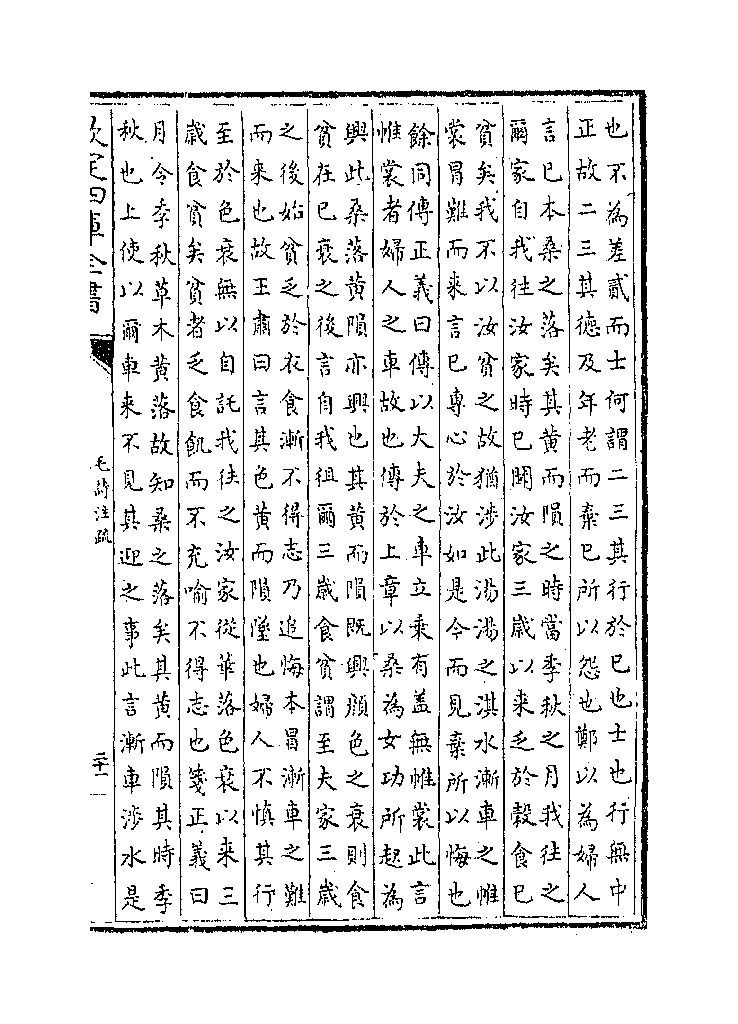 也不為差貳而士何謂二三其行於己也士也行無中
正故二三其德及年老而棄己所以怨也鄭以為婦人
言己本桑之落矣其黄而隕之時當季秋之月我往之
爾家自我往汝家時已聞汝家三歲以來乏於穀食已
貧矣我不以汝貧之故猶涉此湯湯之淇水漸車之帷
裳冒難而來言己專心於汝如是今而見棄所以悔也
餘同傳正義曰傳以大夫之車立乘有蓋無帷裳此言
帷裳者婦人之車故也傳於上章以桑為女功所起為
興此桑落黄隕亦興也其黄而隕既興顔色之衰則食
貧在已衰之後言自我徂爾三歲食貧謂至夫家三歲
之後始貧乏於衣食漸不得志乃追悔本冒漸車之難
而來也故王肅曰言其色黄而隕墜也婦人不慎其行
至於色衰無以自託我往之汝家從華落色衰以來三
歲食貧矣貧者乏食飢而不充喻不得志也箋正義曰
月令季秋草木黄落故知桑之落矣其黄而隕其時季
秋也上使以爾車來不見其迎之事此言漸車涉水是
欽定四庫全書
毛詩注疏
二十一